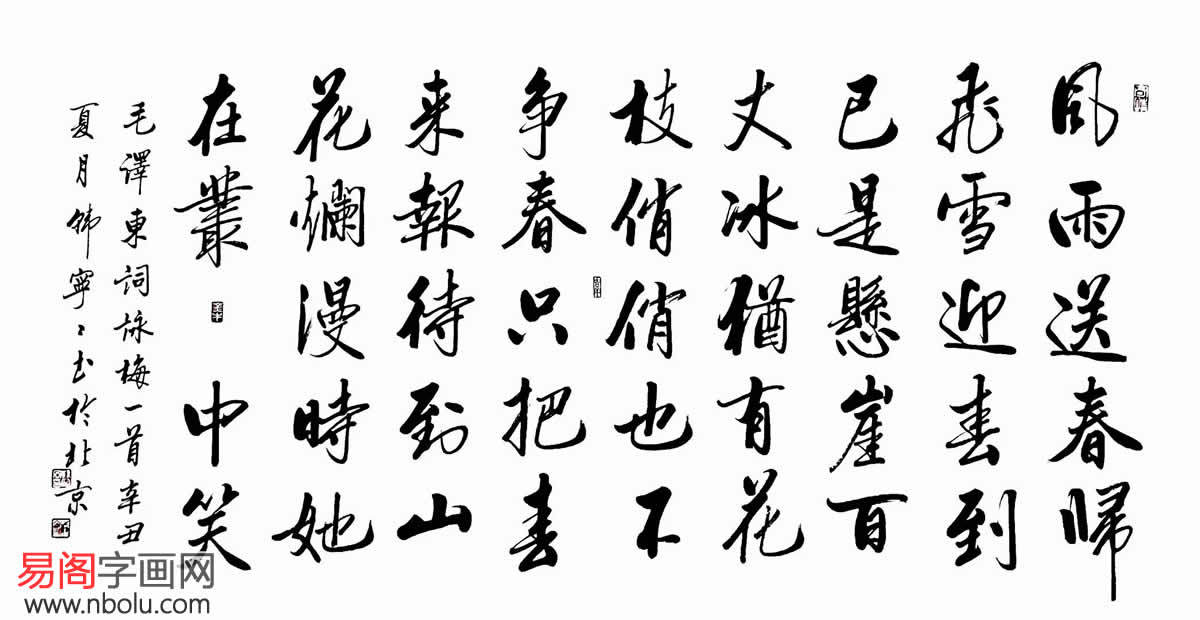 風雨送春歸
飛雪迎春到
已是懸崖百
丈冰猶有花
枝俏俏也不
争春只把春
来報待到山
花爛漫時她
在叢中笑
毛澤東詞詠梅一首辛丑
夏月韩寧寧书於北京
易阁字画网
www.nbolu.com